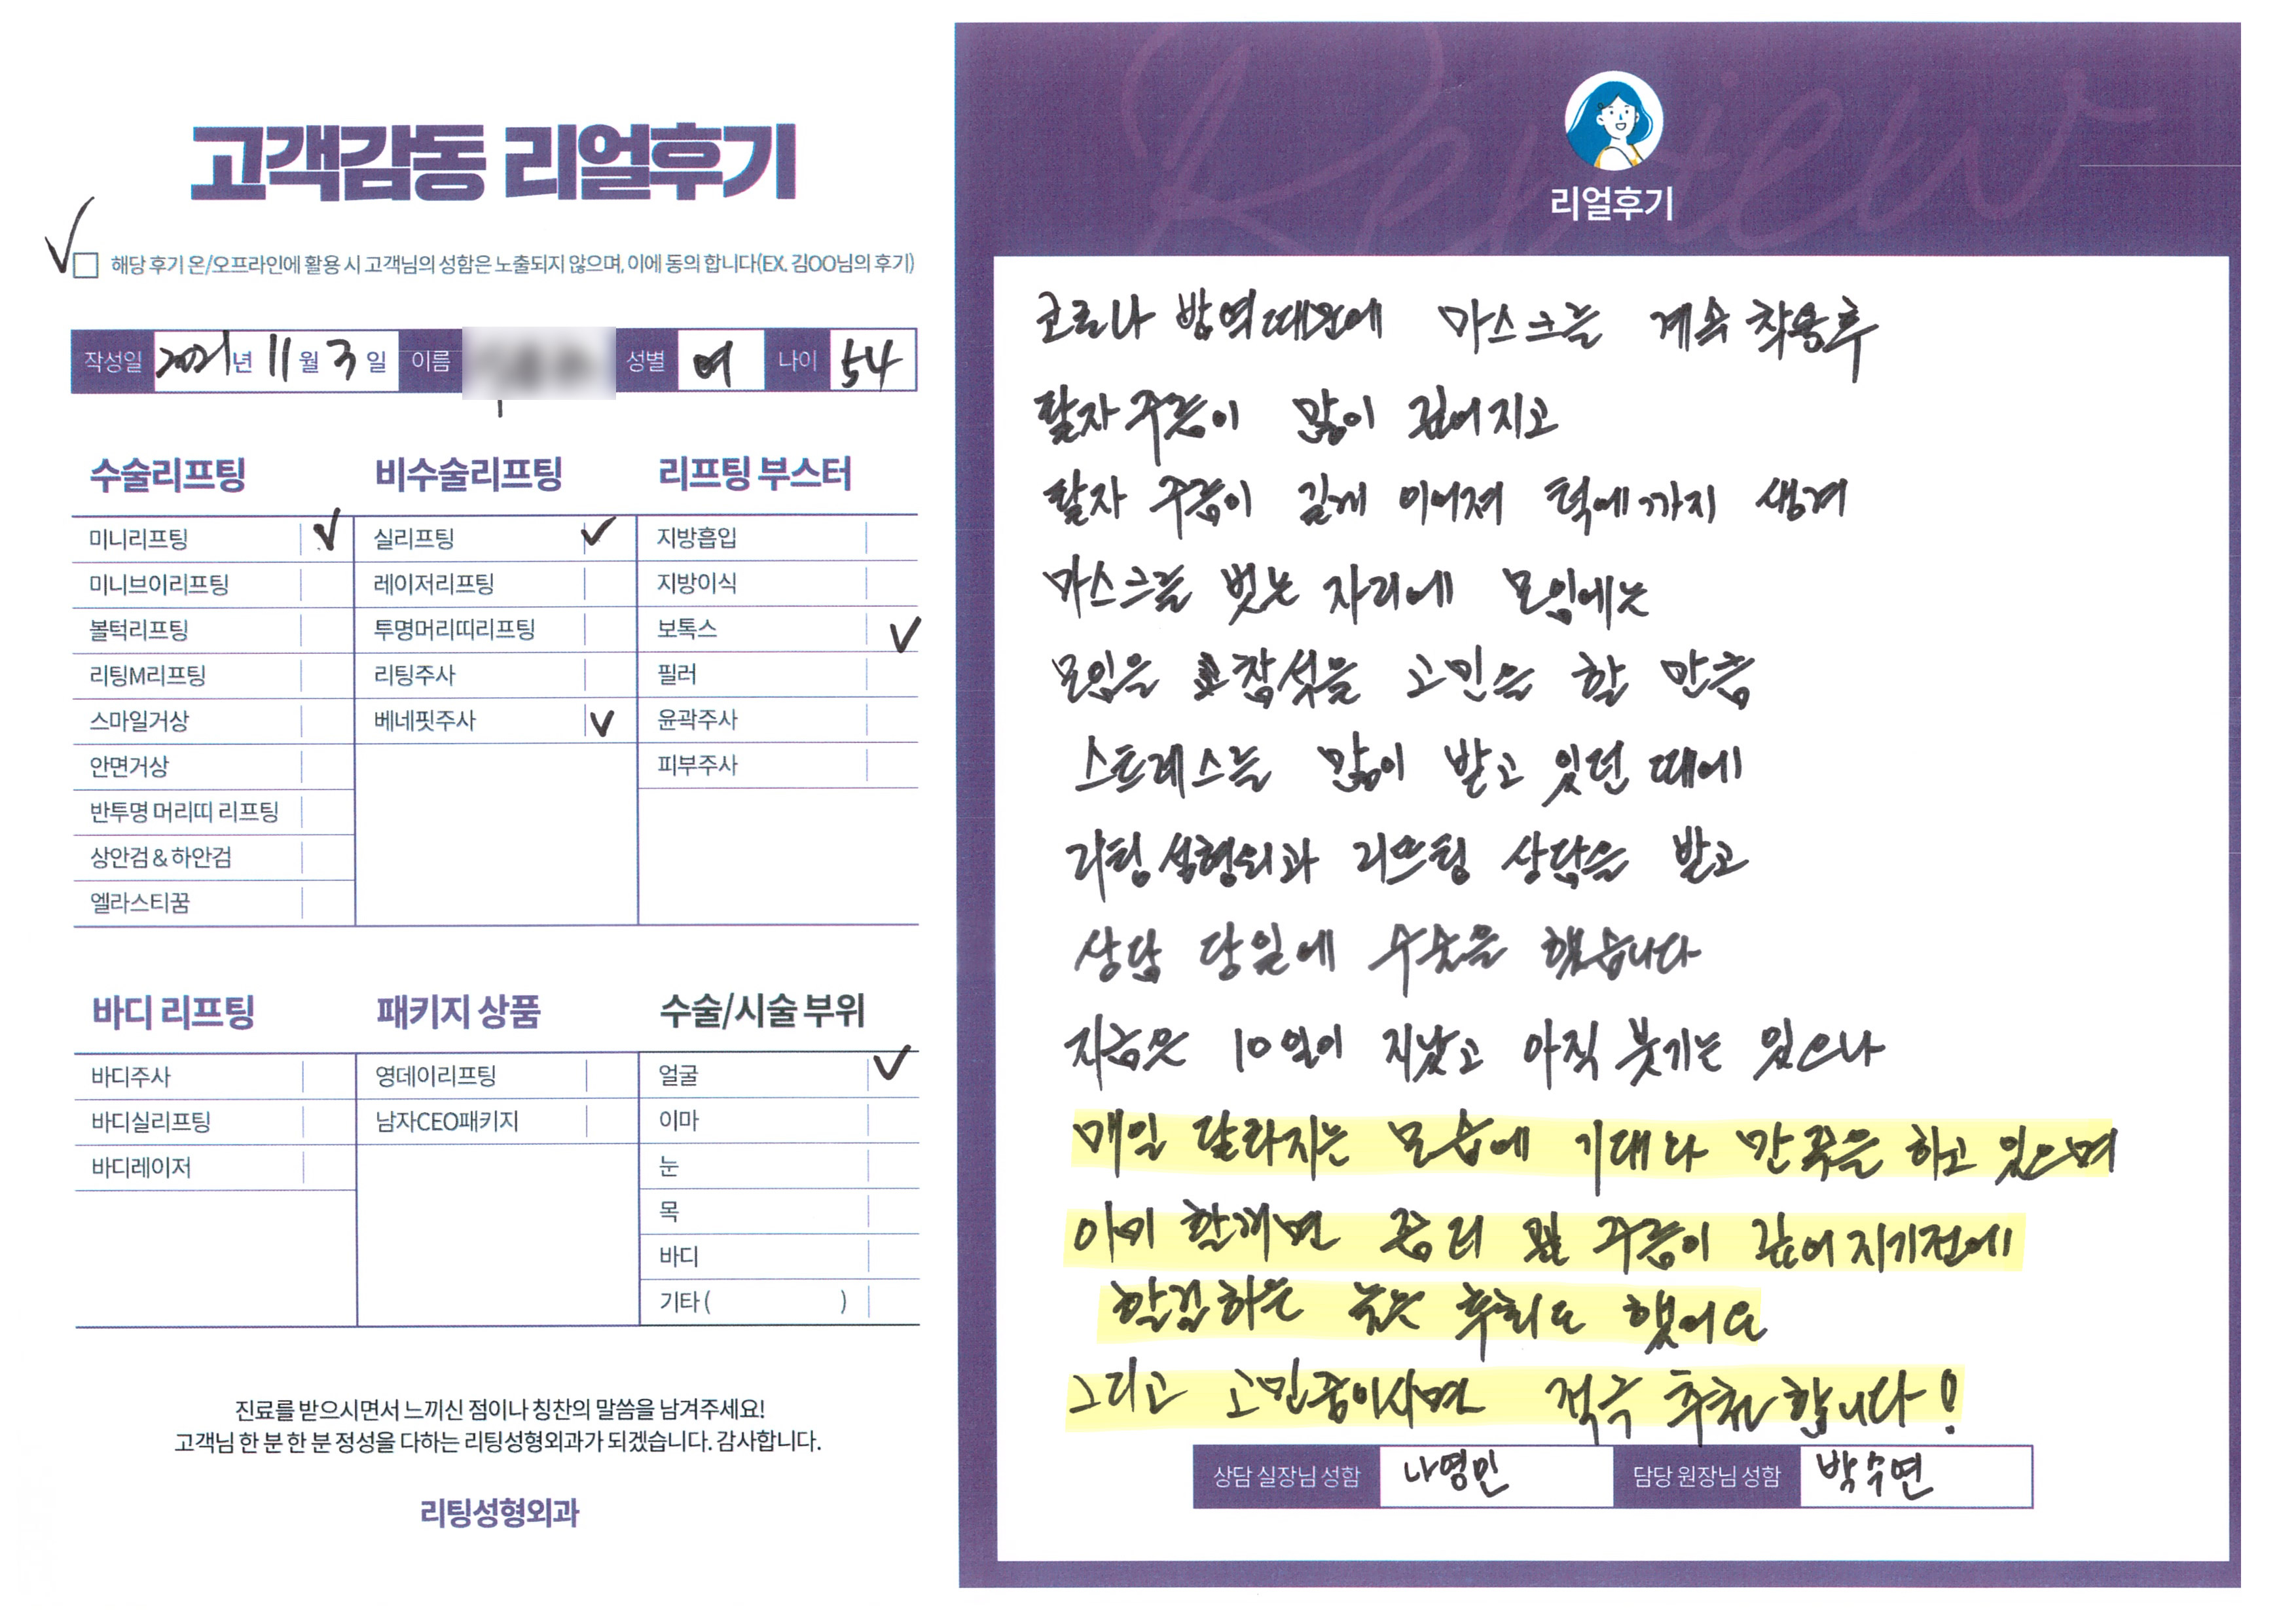 고객감동 리얼후기
해당 후기 온/오프라인에 활용 시 고객님의 성함은 노출되지 않으며, 이에 동의 합니다(EX. 김OO님의 후기)
작성일 2021년 11월 3일 이름 성별 여 나이 54
수술리프팅
미니리프팅
미니브이리프팅
볼턱리프팅
리팅M리프팅
스마일거상
안면거상
반투명 머리띠 리프팅
상안검 & 하안검
엘라스티꿈
비수술리프팅
실리프팅
레이저리프팅
투명머리띠리프팅
리팅주사
베네핏주사
리프팅 부스터
지방흡입
지방이식
보톡스
필러
윤곽주사
피부주사
바디 리프팅
바디주사
바디실리프팅
바디레이저
패키지 상품
영데이리프팅
남자CEO패키지
수술/시술 부위
얼굴
이마
눈
목
바디
기타 ( )
진료를 받으시면서 느끼신 점이나 칭찬의 말씀을 남겨주세요!
고객님 한 분 한 분 정성을 다하는 리팅성형외과가 되겠습니다. 감사합니다.
리팅성형외과
Review
리얼후기
코로나 방역때문에 마스크를 계속 착용후
팔자주름이 많이 깊어지고
팔자 주름이 길게 이어져 턱에까지 생겨
마스크를 벗는 자리에 모임에는
모임은 참석을 고민을 할 만큼
스트레스를 많이 받고 있던 때에
리팅성형외과 리프팅 상담을 받고
상담 당일에 수술을 했습니다
지금은 10일이 지났고 아직 붓기는 있으나
매일 달라지는 모습에 기대나 만족을 하고 있으며
이미 할꺼면 좀 더 주름이 깊어지기전에
할걸하는 후회도 했어요
그리고 고민중이시면 적극 추천합니다!
상담 실장님 성함 나영민 담당 원장님 성함 박수연